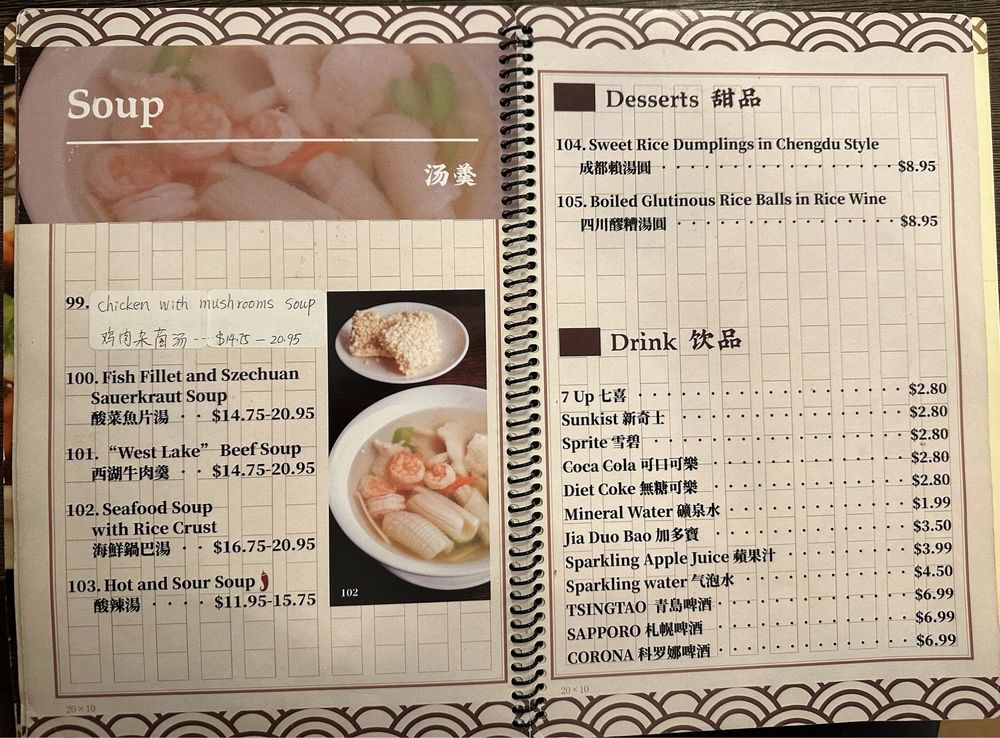 Soup
汤羹
99. chicken with mushrooms soup
鸡肉杂菌汤 --- $14.75 - 20.95
100. Fish Fillet and Szechuan
Sauerkraut Soup
酸菜魚片湯 · · $14.75-20.95
101. “West Lake” Beef Soup
西湖牛肉羹 · · $14.75-20.95
102. Seafood Soup
with Rice Crust
海鮮鍋巴湯 · · $16.75-20.95
103. Hot and Sour Soup
酸辣湯 · · · · $11.95-15.75
102
20×10
Desserts 甜品
104. Sweet Rice Dumplings in Chengdu Style
成都賴湯圓 $8.95
105. Boiled Glutinous Rice Balls in Rice Wine
四川醪糟湯圓 $8.95
Drink 饮品
7 Up 七喜 $2.80
Sunkist 新奇士 $2.80
Sprite 雪碧 $2.80
Coca Cola 可口可樂 $2.80
Diet Coke 無糖可樂 $2.80
Mineral Water 礦泉水 $1.99
Jia Duo Bao 加多寶 $3.50
Sparkling Apple Juice 蘋果汁 $3.99
Sparkling water 气泡水 $4.50
TSINGTAO 青島啤酒 $6.99
SAPPORO 札幌啤酒 $6.99
CORONA 科罗娜啤酒 $6.99
20×10